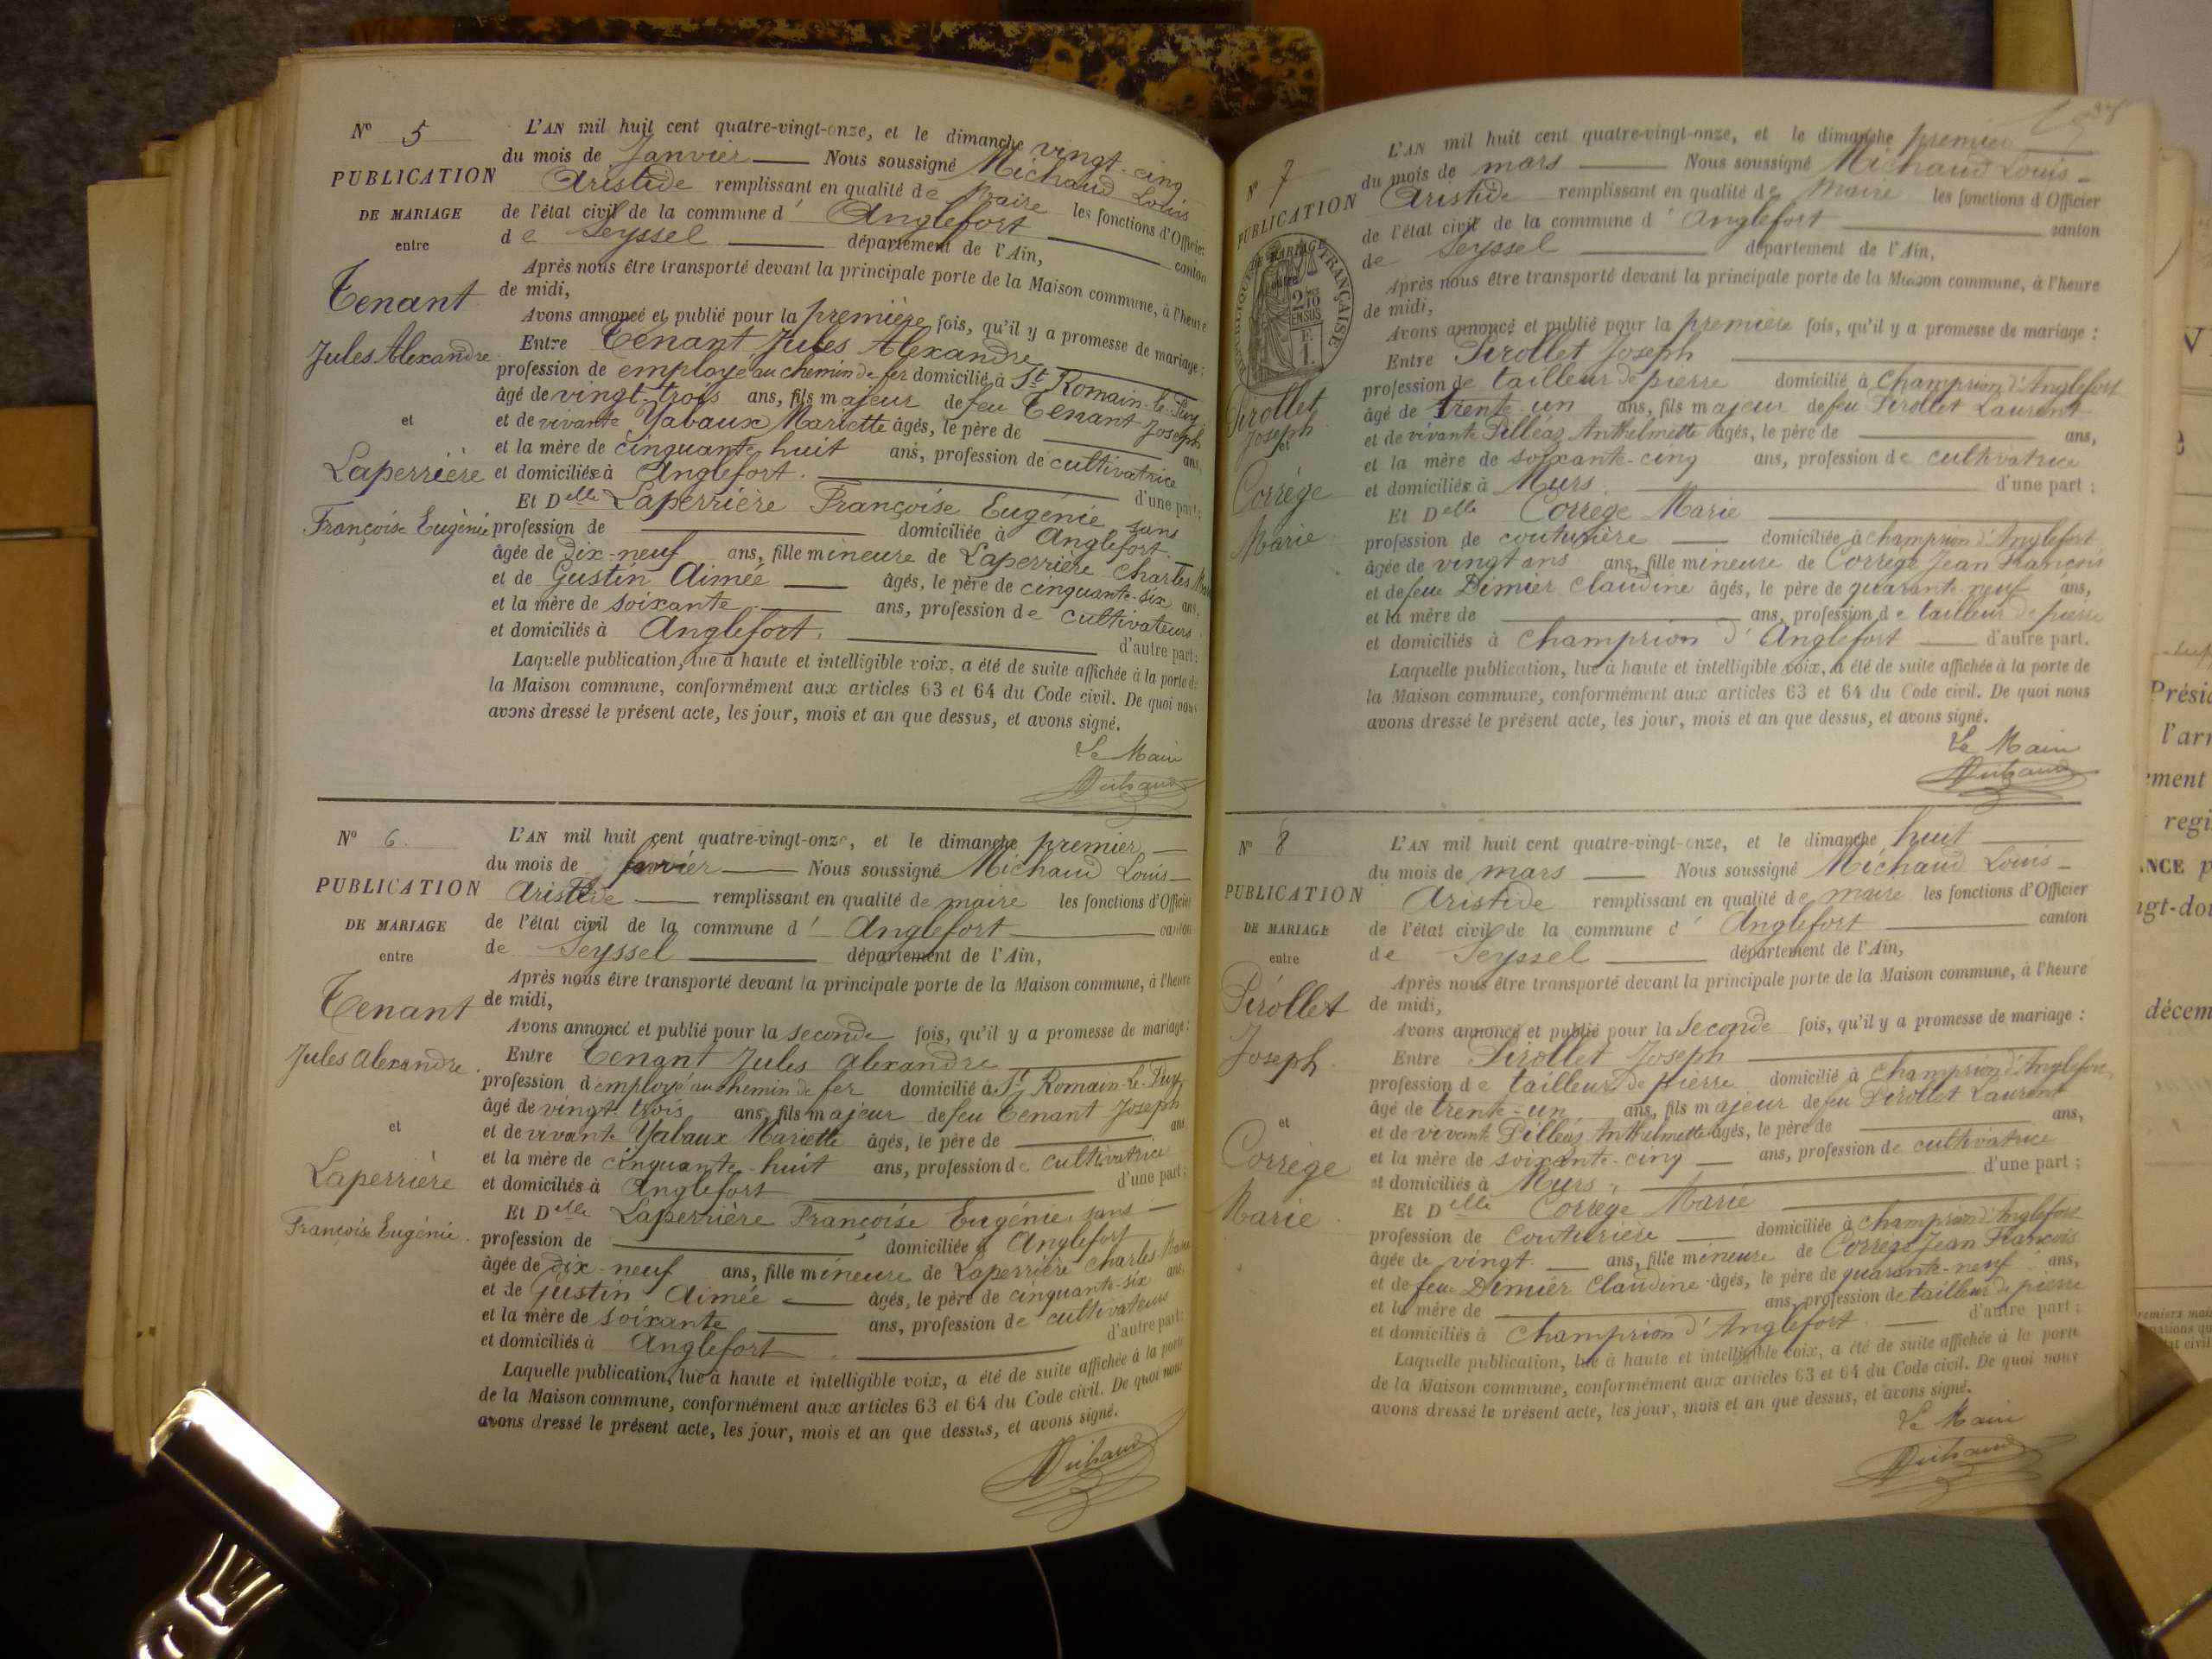 N° 5
PUBLICATION
DE MARIAGE
entre
Tenant
Jules Alexandre
et
Laperrière
Françoise Eugénie
L'AN mil huit cent quatre-vingt-onze, et le dimanche vingt-cinq
du mois de Janvier Nous soussigné Michaud Louis
Aristide remplissant en qualité de Maire les fonctions d'Officier
de l'état civil de la commune d' Anglefort canton
de Seyssel département de l'Ain,
Après nous être transporté devant la principale porte de la Maison commune, à l'heure
de midi,
Avons annoncé et publié pour la première fois, qu'il y a promesse de mariage :
Entre Tenant Jules Alexandre
profession de employé au chemin de fer domicilié à St Romain-le-Puy
âgé de vingt-trois ans, fils majeur de feu Tenant Joseph
et de vivante Yabaux Mariette âgés, le père de ans,
et la mère de cinquante huit ans, profession de cultivatrice
et domiciliés à Anglefort. d'une part ;
Et Delle Laperrière Françoise Eugénie sans
profession de domiciliée à Anglefort.
âgée de dix-neuf ans, fille mineure de Laperrière Charles
et de Gustin Aimée âgés, le père de cinquante-six ans,
et la mère de soixante ans, profession de cultivateurs
et domiciliés à Anglefort. d'autre part ;
Laquelle publication, lue à haute et intelligible voix, a été de suite affichée à la porte de
la Maison commune, conformément aux articles 63 et 64 du Code civil. De quoi nous
avons dressé le présent acte, les jour, mois et an que dessus, et avons signé.
Le Maire
Michaud
N° 6.
PUBLICATION
DE MARIAGE
entre
Tenant
Jules Alexandre.
et
Laperrière
Françoise Eugénie.
L'AN mil huit cent quatre-vingt-onze, et le dimanche premier
du mois de février Nous soussigné Michaud Louis
Aristide remplissant en qualité de maire les fonctions d'Officier
de l'état civil de la commune d' Anglefort canton
de Seyssel département de l'Ain,
Après nous être transporté devant la principale porte de la Maison commune, à l'heure
de midi,
Avons annoncé et publié pour la seconde fois, qu'il y a promesse de mariage :
Entre Tenant Jules Alexandre
profession d'employé au chemin de fer domicilié à St Romain-le-Puy
âgé de vingt-trois ans, fils majeur de feu Tenant Joseph
et de vivante Yabaux Mariette âgés, le père de ans
et la mère de cinquante-huit ans, profession de cultivatrice
et domiciliés à Anglefort d'une part ;
Et Delle Laperrière Françoise Eugénie, sans
profession de domiciliée à Anglefort
âgée de dix-neuf ans, fille mineure de Laperrière Charles
et de Gustin Aimée âgés, le père de cinquante-six ans,
et la mère de soixante ans, profession de cultivateurs
et domiciliés à Anglefort. d'autre part ;
Laquelle publication, lue à haute et intelligible voix, a été de suite affichée à la porte
de la Maison commune, conformément aux articles 63 et 64 du Code civil. De quoi nous
avons dressé le présent acte, les jour, mois et an que dessus, et avons signé.
Michaud
N° 7
PUBLICATION
DE MARIAGE
entre
RÉPUBLIQUE FRANÇAISE
2/10 EN SUS
Pirollet
Joseph
et
Corrège
Marie
L'AN mil huit cent quatre-vingt-onze, et le dimanche premier
du mois de mars Nous soussigné Michaud Louis
Aristide remplissant en qualité de Maire les fonctions d'Officier
de l'état civil de la commune d' Anglefort canton
de Seyssel département de l'Ain,
Après nous être transporté devant la principale porte de la Maison commune, à l'heure
de midi,
Avons annoncé et publié pour la première fois, qu'il y a promesse de mariage :
Entre Pirollet Joseph
profession de tailleur de pierre domicilié à Champrion d'Anglefort
âgé de trente-un ans, fils majeur de feu Pirollet Laurent
et de vivante Pilléaz Anthelmette âgés, le père de ans,
et la mère de soixante-cinq ans, profession de cultivatrice
et domiciliés à Murs. d'une part ;
Et Delle Corrège Marie
profession de couturière domiciliée à Champrion d'Anglefort
âgée de vingt ans ans, fille mineure de Corrège Jean François
et de feue Dimier Claudine âgés, le père de quarante neuf ans,
et la mère de ans, profession de tailleur de pierre
et domiciliés à Champrion d'Anglefort d'autre part.
Laquelle publication, lue à haute et intelligible voix, a été de suite affichée à la porte de
la Maison commune, conformément aux articles 63 et 64 du Code civil. De quoi nous
avons dressé le présent acte, les jour, mois et an que dessus, et avons signé.
Le Maire
Michaud
N° 8
PUBLICATION
DE MARIAGE
entre
Pirollet
Joseph.
et
Corrège
Marie.
L'AN mil huit cent quatre-vingt-onze, et le dimanche huit
du mois de mars Nous soussigné Michaud Louis
Aristide remplissant en qualité de maire les fonctions d'Officier
de l'état civil de la commune d' Anglefort canton
de Seyssel département de l'Ain,
Après nous être transporté devant la principale porte de la Maison commune, à l'heure
de midi,
Avons annoncé et publié pour la Seconde fois, qu'il y a promesse de mariage :
Entre Pirollet Joseph
profession de tailleur de pierre domicilié à Champrion d'Anglefort
âgé de trente-un ans, fils majeur de feu Pirollet Laurent
et de vivante Pilléaz Anthelmette âgés, le père de ans,
et la mère de soixante-cinq ans, profession de cultivatrice
et domiciliés à Murs. d'une part ;
Et Delle Corrège Marie
profession de Couturière domiciliée à Champrion d'Anglefort
âgée de vingt ans, fille mineure de Corrège Jean François
et de feue Dimier Claudine âgés, le père de quarante-neuf ans,
et la mère de ans, profession de tailleur de pierre
et domiciliés à Champrion d'Anglefort. d'autre part ;
Laquelle publication, lue à haute et intelligible voix, a été de suite affichée à la porte
de la Maison commune, conformément aux articles 63 et 64 du Code civil. De quoi nous
avons dressé le présent acte, les jour, mois et an que dessus, et avons signé.
Le Maire
Michaud